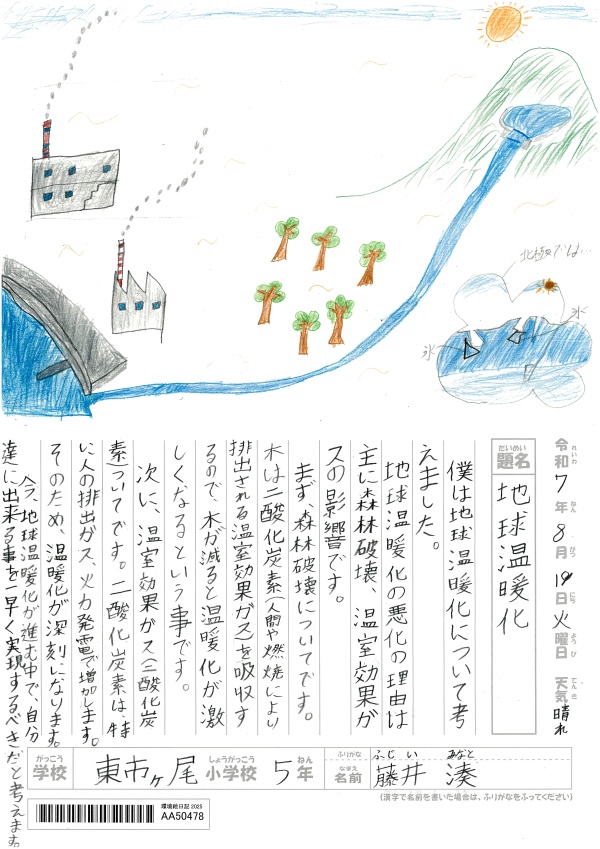 北極では…
氷
氷
令和7年8月19日火曜日 天気 晴れ
れいわ ねん がつ にち ようび てんき
だいめい
題名 地球温暖化
僕は地球温暖化について考
えました。
地球温暖化の悪化の理由は
主に森林破壊、温室効果が
スの影響です。
まず、森林破壊についてです。
木は二酸化炭素(人間や燃焼により
排出される温室効果ガス)を吸収す
るので、木が減ると温暖化が激
しくなるという事です。
次に、温室効果ガス(二酸化炭
素)ついてです。二酸化炭素は、特
に人の排出ガス、火力発電で増加します。
そのため、温暖化が深刻になります。
今、地球温暖化が進む中で、自分
達に出来る事を一早く実現するべきだと考えます。
がっこう しょうがっこう ねん
学校 東市ヶ尾小学校 5年
ふりがな ふじい みなと
なまえ
名前 藤井 湊
(漢字で名前を書いた場合は、ふりがなをふってください)
環境絵日記 2025
AA50478